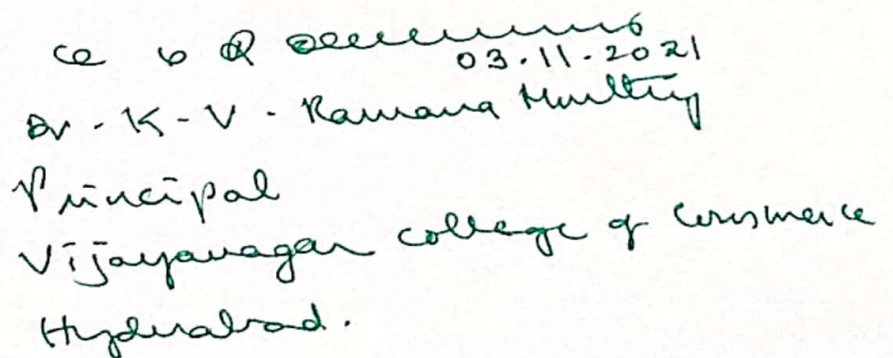 03.11.2021
Dr. K-V. Ramana Murthy
Principal
Vijayanagar College of Commerce
Hyderabad.